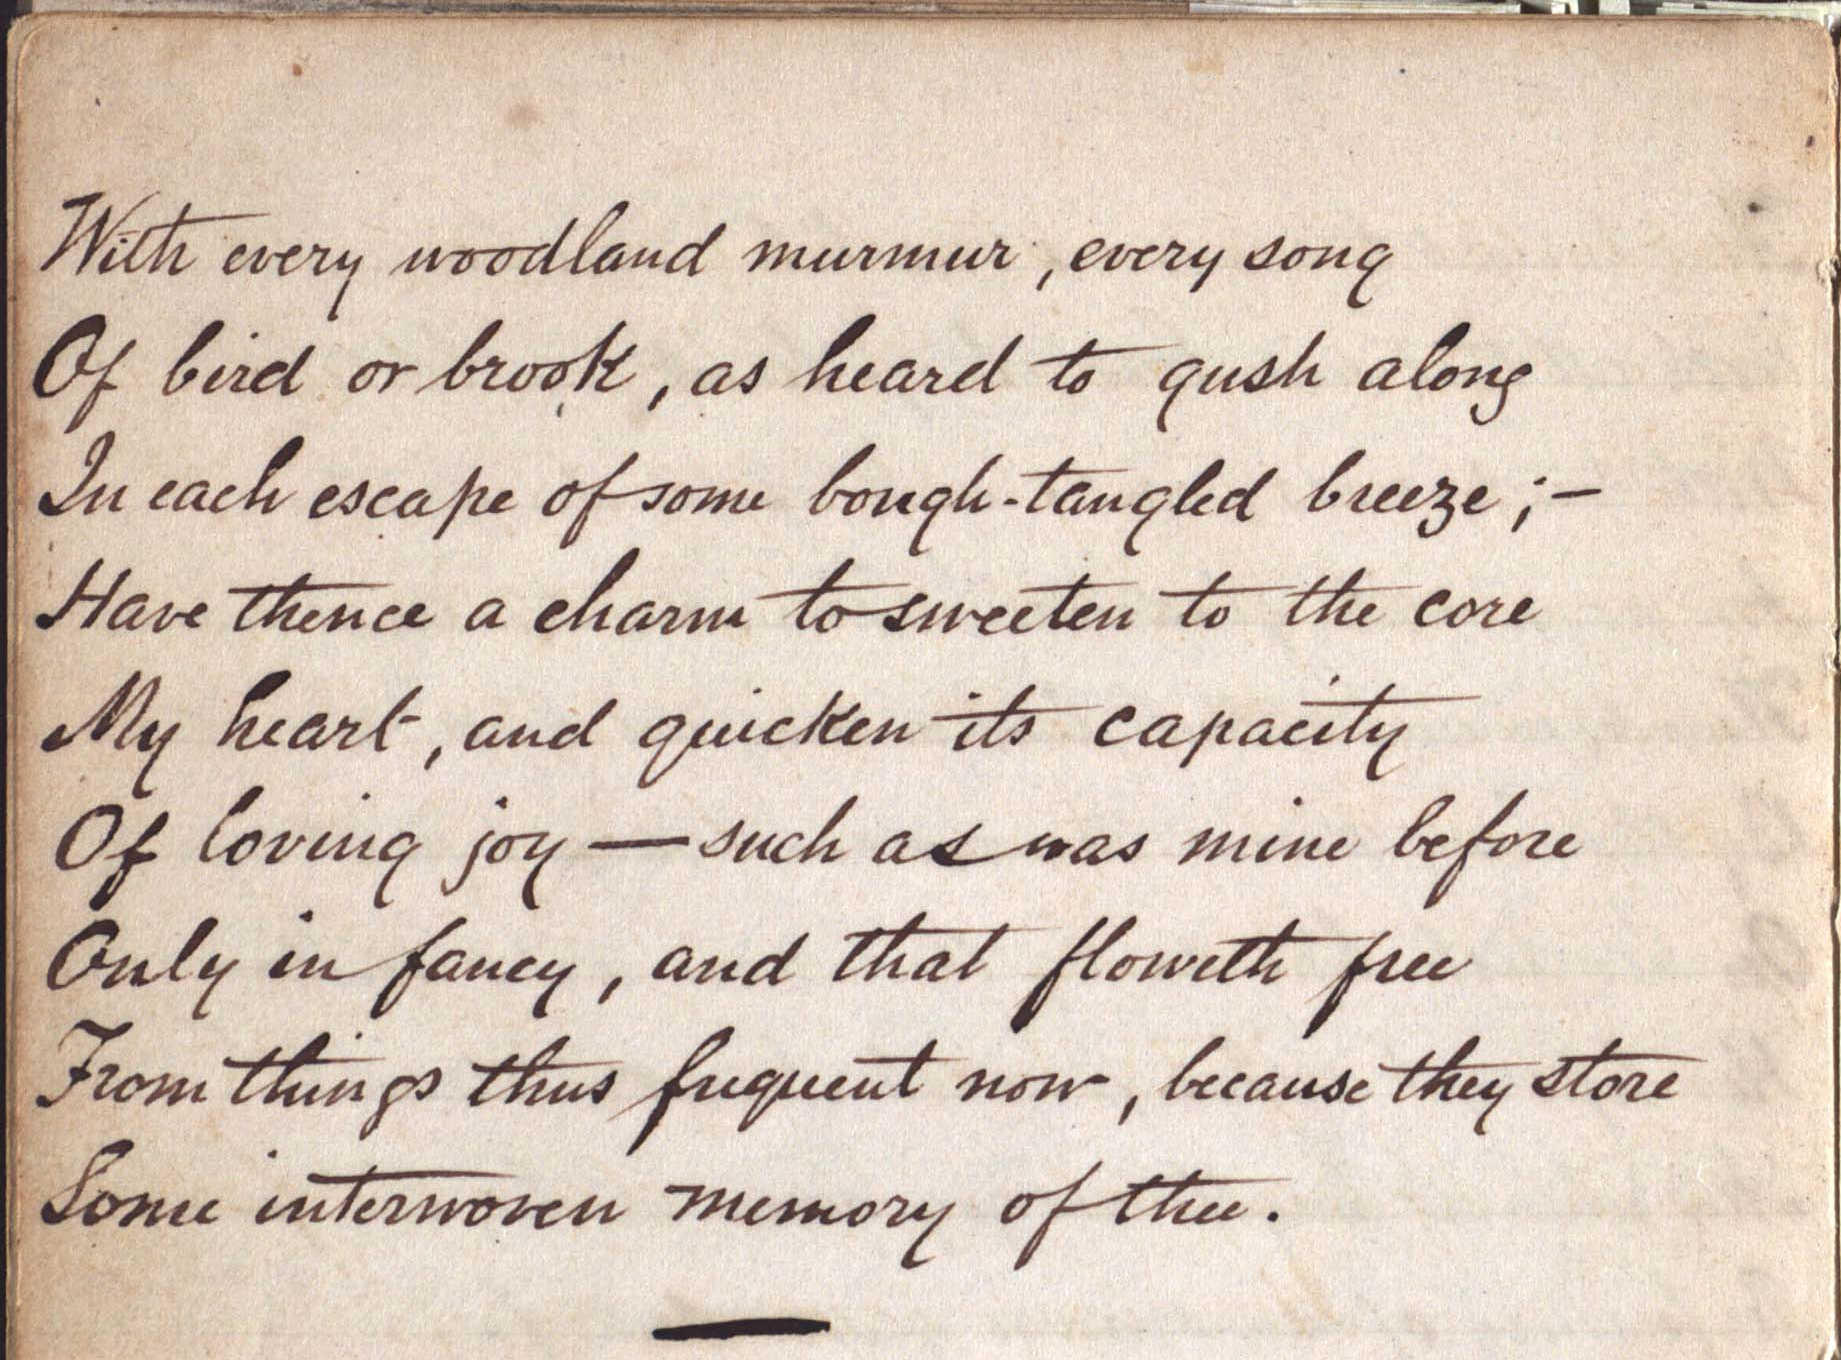 With every woodland murmur, every song
Of bird or brook, as heard to gush along
In each escape of some bough-tangled breeze;—
Have thence a charm to sweeten to the core
My heart, and quicken its capacity
Of loving joy — such as was mine before
Only in fancy, and that floweth free
From things thus frequent now, because they store
Some interwoven memory of thee.